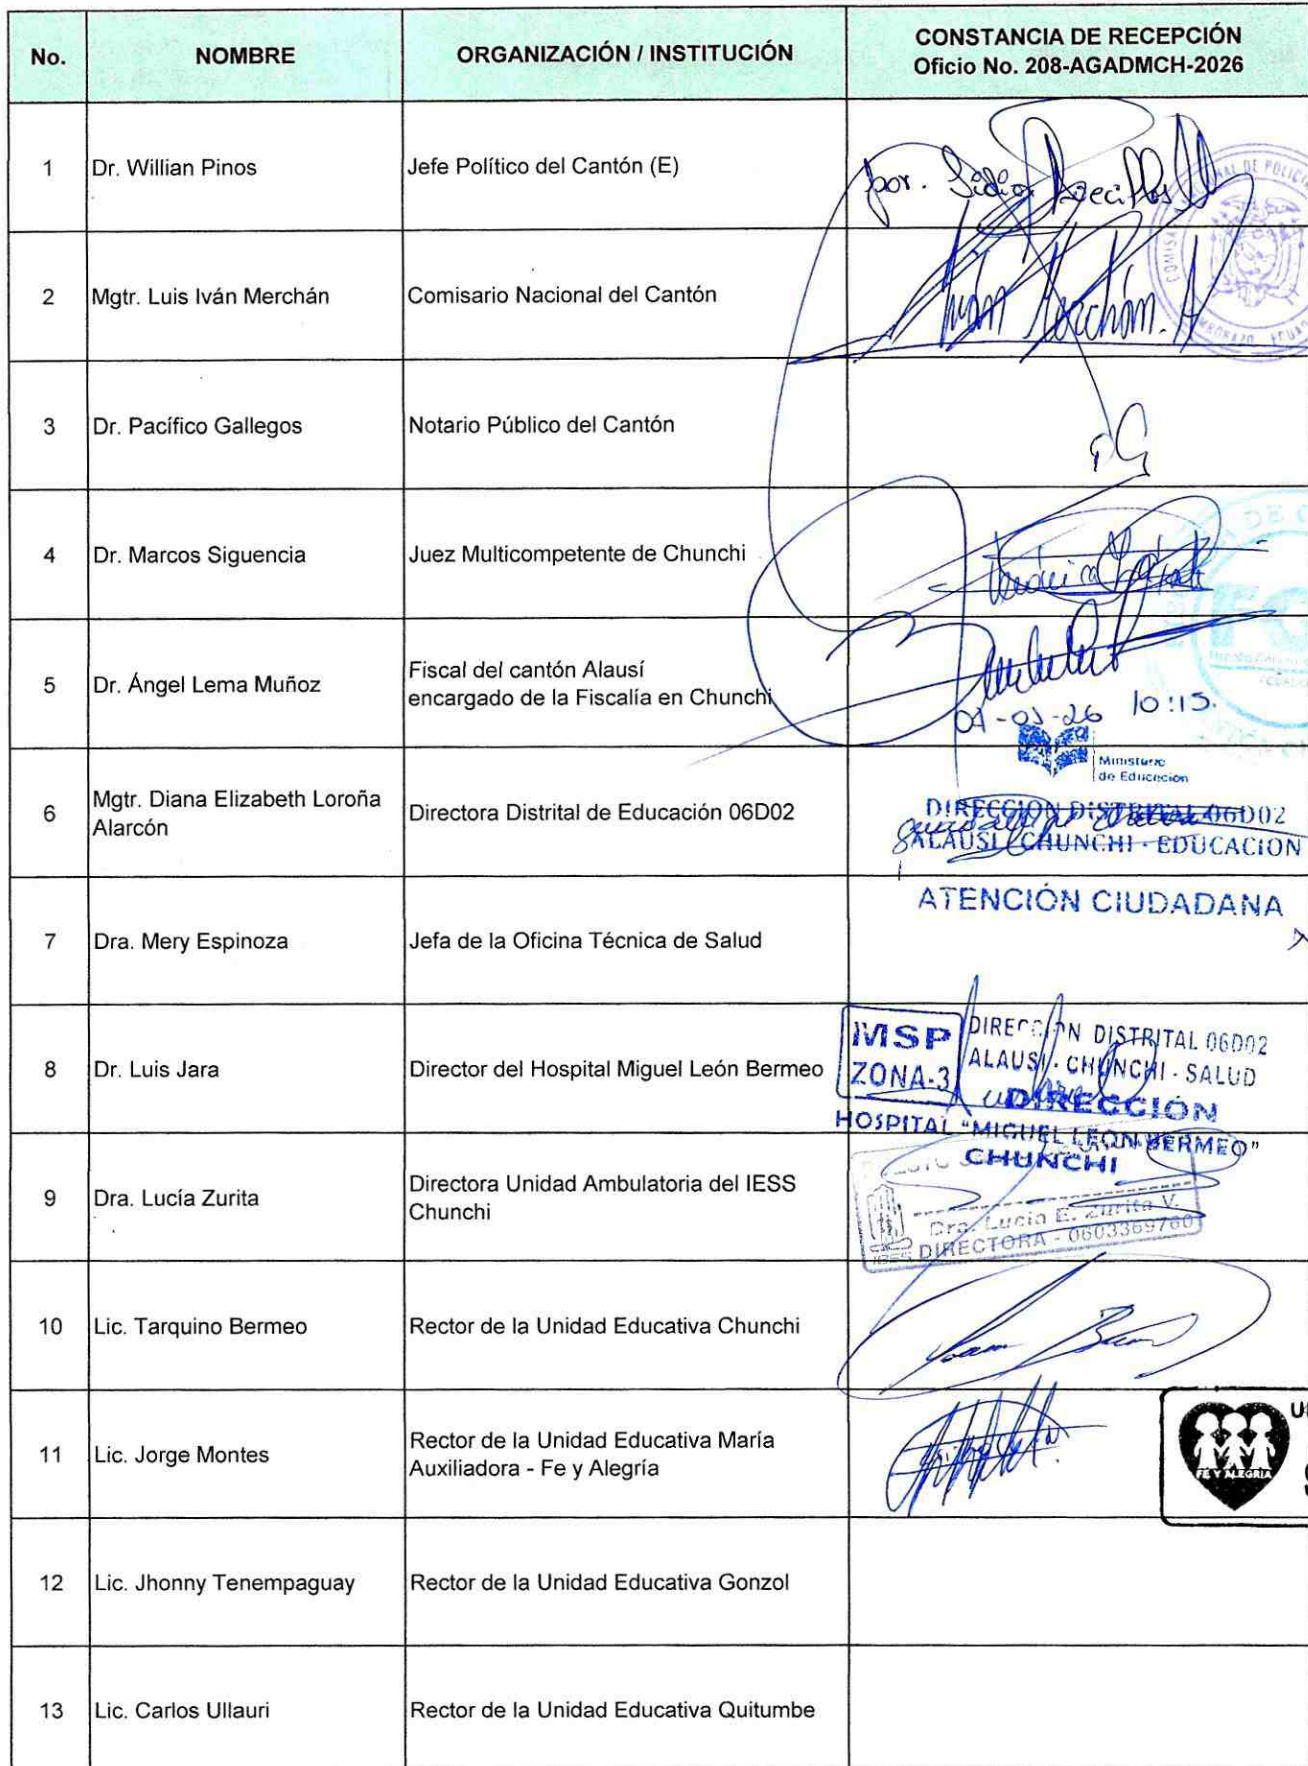 No.
NOMBRE
ORGANIZACIÓN / INSTITUCIÓN
CONSTANCIA DE RECEPCIÓN
Oficio No. 208-AGADMCH-2026
1
Dr. Willian Pinos
Jefe Político del Cantón (E)
por.
2
Mgtr. Luis Iván Merchán
Comisario Nacional del Cantón
Iván Merchán. A
3
Dr. Pacífico Gallegos
Notario Público del Cantón
4
Dr. Marcos Siguencia
Juez Multicompetente de Chunchi
5
Dr. Ángel Lema Muñoz
Fiscal del cantón Alausí
encargado de la Fiscalía en Chunchi
10:15.
6
Mgtr. Diana Elizabeth Loroña
Alarcón
Directora Distrital de Educación 06D02
Ministerio
de Educación
DIRECCIÓN DISTRITAL 06D02
ALAUSI CHUNCHI - EDUCACION
ATENCIÓN CIUDADANA
7
Dra. Mery Espinoza
Jefa de la Oficina Técnica de Salud
8
Dr. Luis Jara
Director del Hospital Miguel León Bermeo
MSP
ZONA-3
DIRECCIÓN DISTRITAL 06D02
ALAUSI - CHUNCHI - SALUD
DIRECCIÓN
HOSPITAL "MIGUEL LEON BERMEO"
CHUNCHI
9
Dra. Lucía Zurita
Directora Unidad Ambulatoria del IESS
Chunchi
Dra. Lucia E. Zurita V.
DIRECTORA - 0603369760
IESS
10
Lic. Tarquino Bermeo
Rector de la Unidad Educativa Chunchi
11
Lic. Jorge Montes
Rector de la Unidad Educativa María
Auxiliadora - Fe y Alegría
FE Y ALEGRIA
12
Lic. Jhonny Tenempaguay
Rector de la Unidad Educativa Gonzol
13
Lic. Carlos Ullauri
Rector de la Unidad Educativa Quitumbe